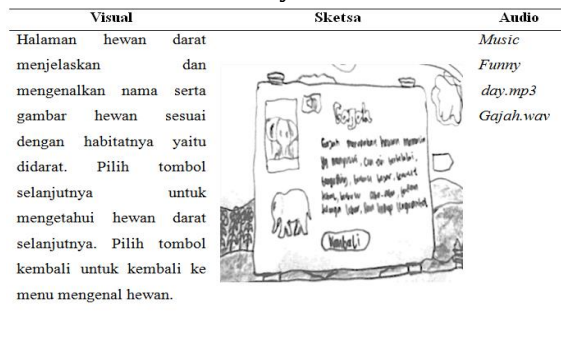 Visual Sketsa Audio
Halaman hewan darat
menjelaskan dan
mengenalkan nama serta
gambar hewan sesuai
dengan habitatnya yaitu
didarat. Pilih tombol
selanjutnya untuk
mengetahui hewan darat
selanjutnya. Pilih tombol
kembali untuk kembali ke
menu mengenal hewan.
Gajah merupakan hewan mamalia
Kembali
Music
Funny
day.mp3
Gajah.wav